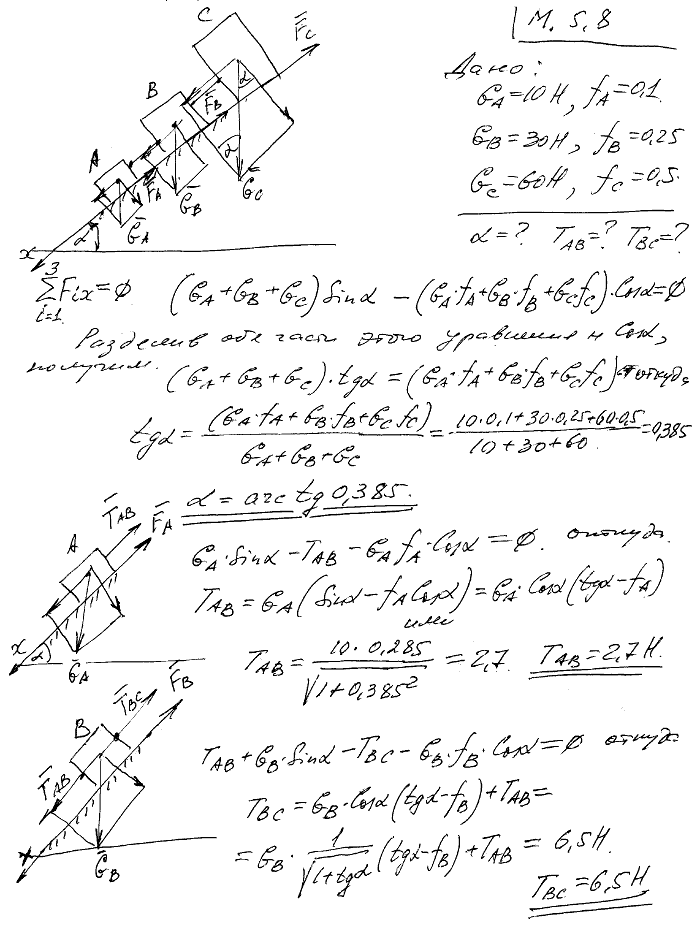 М. 5, 8
Дано:
G_A=10Н, f_A=0,1
G_B=30Н, f_B=0,25
G_C=60Н, f_C=0,5.
α=? T_AB=? T_BC=?
C
F̄_C
α
B
F̄_B
α
A
F̄_A
Ḡ_A
Ḡ_B
Ḡ_C
α
x
3
∑Fix=0 (G_A+G_B+G_C)Sinα − (G_A·f_A+G_B·f_B+G_Cf_C)·Cosα=0
i=1
Разделив обе части этого уравнения н Cosα,
получим.
(G_A+G_B+G_C)·tgα = (G_A·f_A+G_B·f_B+G_Cf_C) откуда
tgα = (G_A·f_A+G_B·f_B+G_Cf_C)/(G_A+G_B+G_C) = (10·0,1+30·0,25+60·0,5)/(10+30+60) = 0,385
α = arc tg 0,385.
T̄_AB
F̄_A
A
x
α
Ḡ_A
G_A·Sinα − T_AB − G_Af_A·Cosα = 0. откуда.
T_AB = G_A(Sinα − f_A Cosα) = G_A·Cosα(tgα − f_A)
или
T_AB = 10·0,285/√(1+0,385²) = 2,7. T_AB = 2,7 Н.
T̄_BC
F̄_B
B
T̄_AB
x
Ḡ_B
T_AB + G_B·Sinα − T_BC − G_B·f_B·Cosα = 0 откуда
T_BC = G_B·Cosα(tgα − f_B) + T_AB =
= G_B·1/√(1+tgα)(tgα − f_B) + T_AB = 6,5Н.
T_BC = 6,5 Н